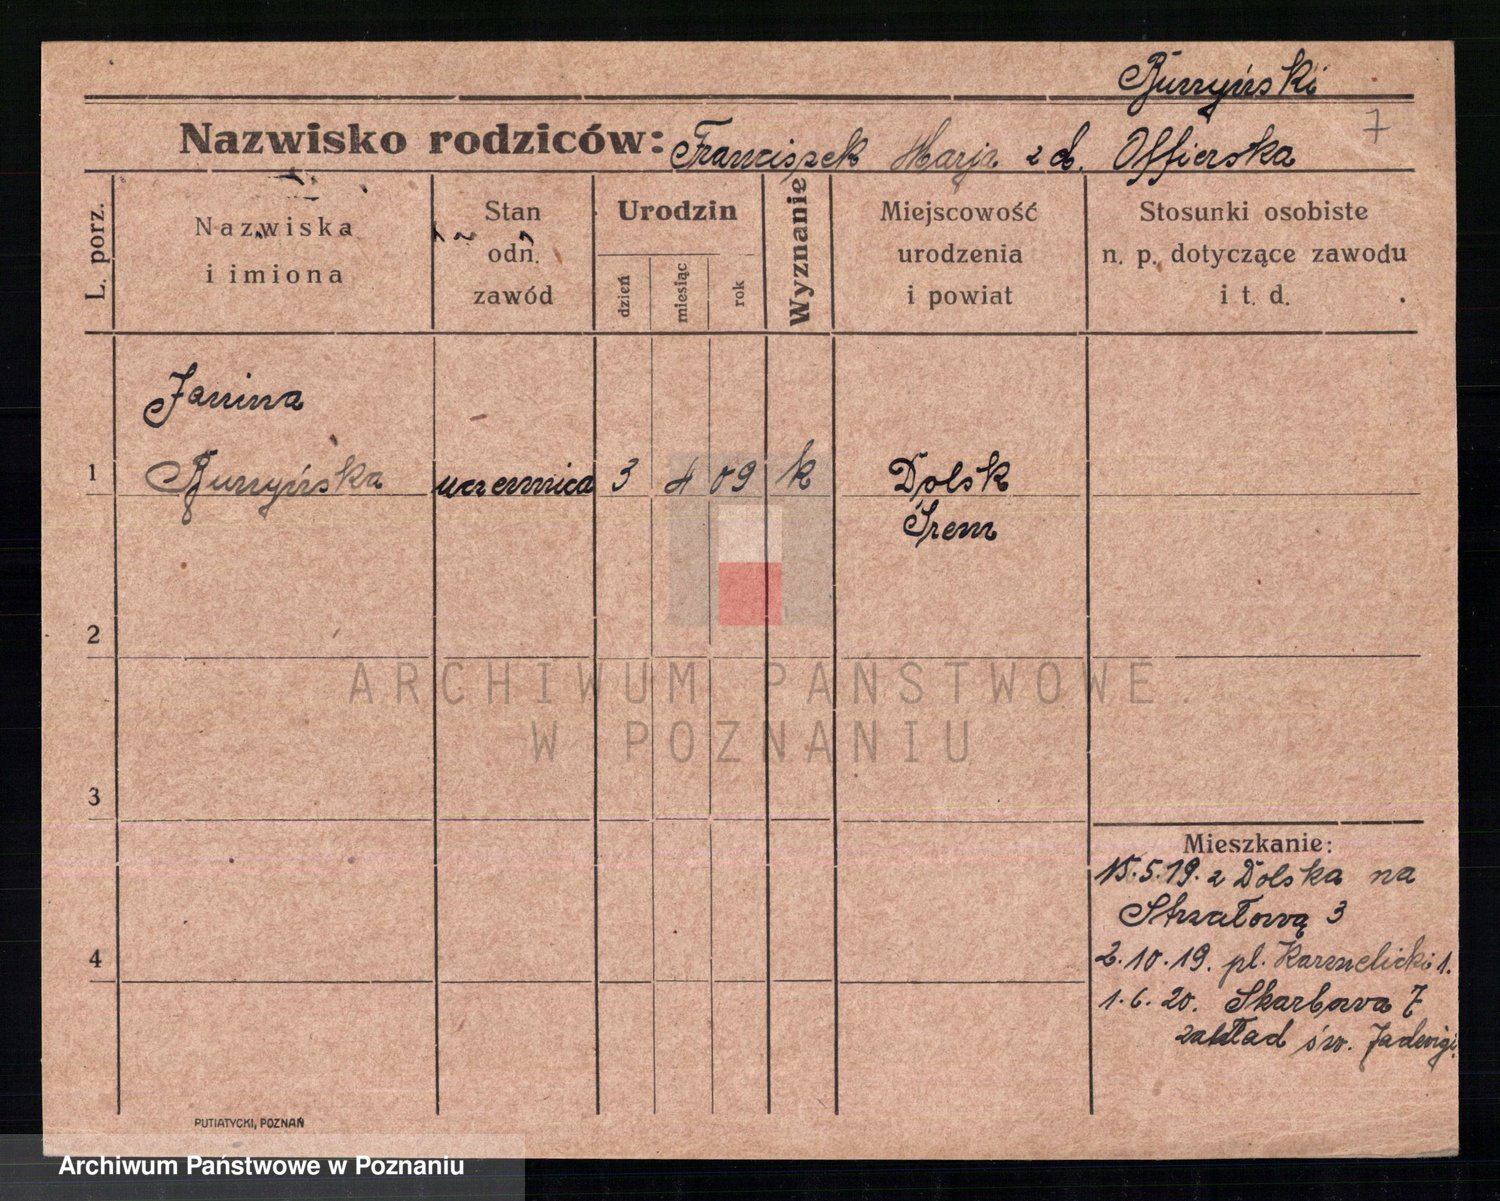 Burzyński
Nazwisko rodziców: Franciszek Marja z d. Offierska
7
L. porz.
Nazwiska
i imiona
Stan
odn.
zawód
Urodzin
dzień
miesiąc
rok
Wyznanie
Miejscowość
urodzenia
i powiat
Stosunki osobiste
n. p. dotyczące zawodu
i t. d.
Janina
1 Burzyńska uczennica 3 4 09 k Dolsk
Śrem
2
ARCHIWUM PAŃSTWOWE
W POZNANIU
3
Mieszkanie:
15.5.19. z Dolska na
Strzałową 3
4
2.10.19. pl. Karmelicki 1.
1.6.20. Skarbowa 7
zakład św. Jadwigi
PUTIATYCKI, POZNAŃ
Archiwum Państwowe w Poznaniu